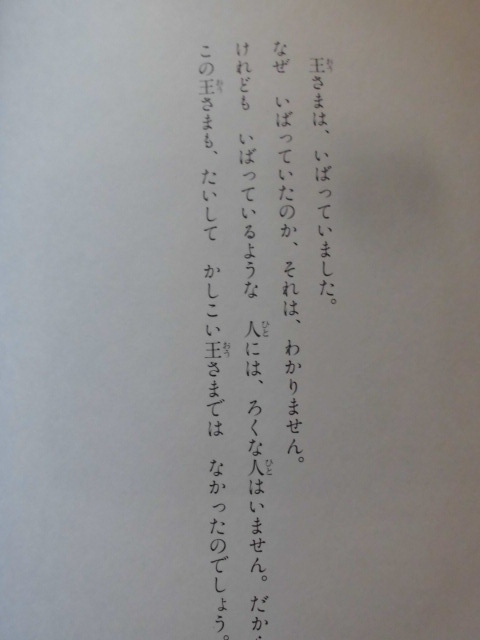 王さまは、いばっていました。
なぜ　いばっていたのか、それは、わかりません。
けれども　いばっているような　人には、ろくな人はいません。だか
この王さまも、たいして　かしこい王さまでは　なかったのでしょう。